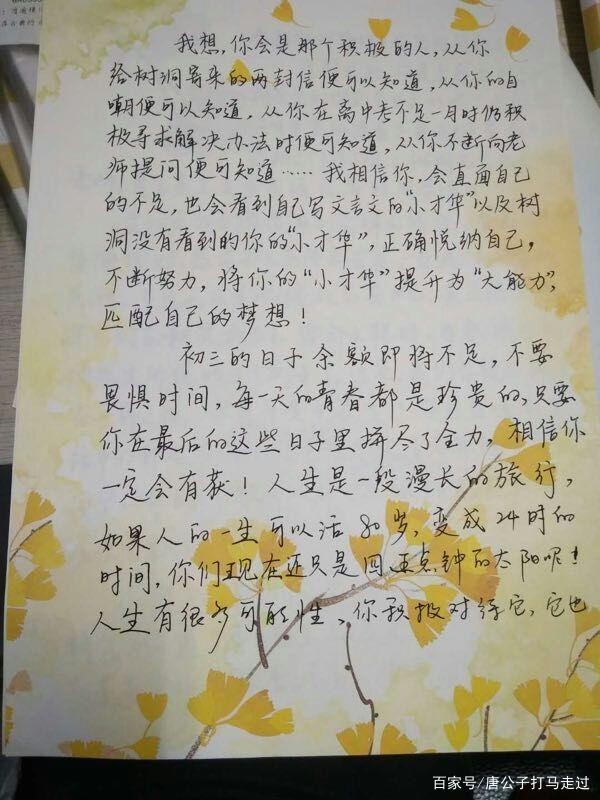 我想，你会是那个积极的人，从你
给树洞寄来的两封信便可以知道，从你的自
嘲便可以知道，从你在离中考不足一月时仍积
极寻求解决办法时便可知道，从你不断向老
师提问便可知道……我相信你，会直面自己
的不足，也会看到自己写文言文的“小才华”以及树
洞没有看到的你的“小才华”，正确悦纳自己，
不断努力，将你的“小才华”提升为“大能力”，
匹配自己的梦想！
初三的日子余额即将不足，不要
畏惧时间，每一天的青春都是珍贵的，只要
你在最后的这些日子里拼尽了全力，相信你
一定会有获！人生是一段漫长的旅行，
如果人的一生可以活80岁，变成24时的
时间，你们现在还只是四五点钟的太阳呢！
人生有很多可能性，你积极对待它，它也
百家号/唐公子打马走过